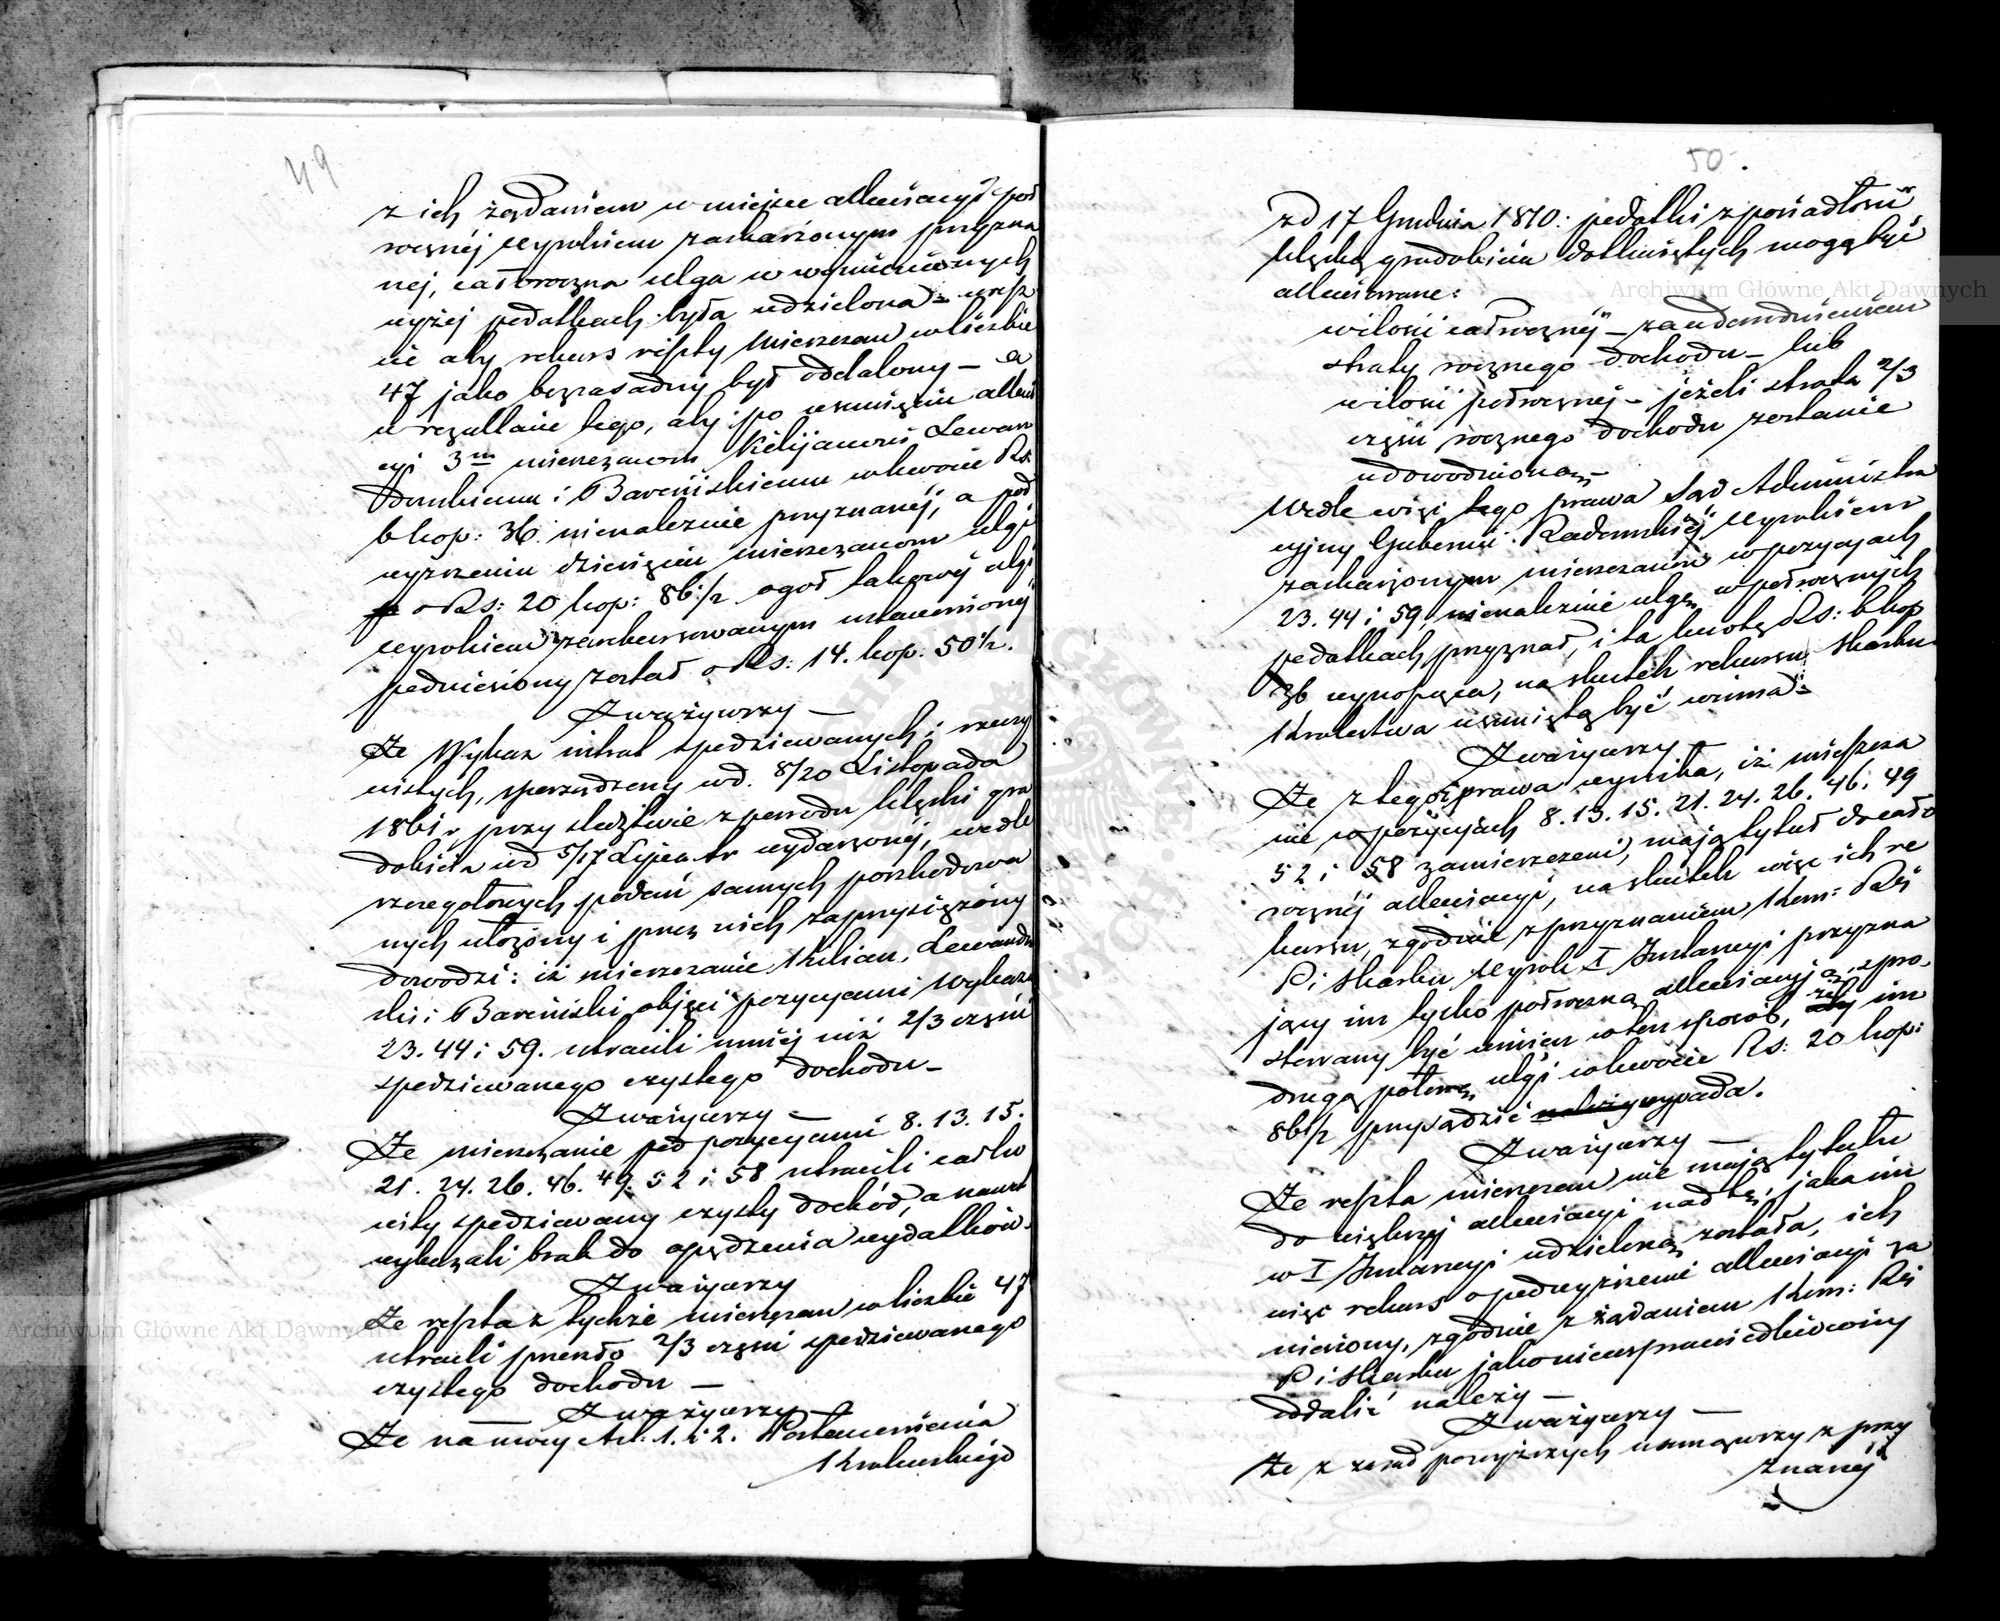 49
z ich żądaniem w miejsce allewiacyi pół
rocznej wyrokiem zaskarżonym przyzna
nej, całoroczna ulga w wymienionych
wyżej podatkach była udzielona – wresz
cie aby rekurs reszty mieszczan w liczbie
47 jako bezzasadny był oddalony – a
w rezultacie tego, aby po usunięciu allewia
cyi 3m mieszczanom Kilijanowi Lewan
dowskiemu i Bareńskiemu w kwocie Rs.
6 kop: 36 nienależnie przyznanej, a pod
wyższeniu dziesięciu mieszczanom ulgi
o Rs: 20 kop: 86½ ogół takowej ulgi
wyrokiem zarekursowanym ustanowionej
podniesiony został o Rs: 14. kop: 50½.
Zważywszy –
Że Wykaz intrat spodziewanych i rzeczy
wistych, sporządzony w d. 8/20 Listopada
1861 r. przy śledztwie z powodu klęski gra
dobicia w d 5/17 Lipca tr wydarzonej, wedle
szczegółowych podań samych poszkodowa
nych ułożony i przez nich zaprzysiężony
dowodzi: iż mieszczanie Kilian, Lewandow
ski i Bareński objęci pozycyami Wykazu
23. 44 i 59. utracili mniej niż 2/3 części
spodziewanego czystego dochodu –
Zważywszy –
Że mieszczanie pod pozycyami 8. 13. 15.
21. 24. 26. 46. 49. 52 i 58 utracili całko
wity spodziewany czysty dochód, a nawet
wykazali brak do opędzenia wydatków.
Zważywszy
Że reszta z tychże mieszczan w liczbie 47
utracili przeszło 2/3 części spodziewanego
czystego dochodu –
Zważywszy –
Że na mocy Art: 1. i 2. Postanowienia
Królewskiego
50.
z d 17 Grudnia 1810: podatki z posiadłości
klęską gradobicia dotkniętych mogą być
allewiowane:
w ilości całorocznej – za udowodnieniem
straty rocznego dochodu – lub
w ilości półrocznej – jeżeli strata 2/3
części rocznego dochodu zostanie
udowodnioną –
Wedle więc tego prawa Sąd Administra
cyjny Gubernii Radomskiej wyrokiem
zaskarżonym mieszczanom w pozycyach
23. 44 i 59 nienależnie ulgę w półrocznych
podatkach przyznał, i ta kwotę Rs: 6 kop
36 wynosząca, na skutek rekursu Skarbu
Królestwa usuniętą być winna –
Zważywszy –
Że z tegoż prawa wynika, iż mieszcza
nie w pozycyach 8. 13. 15. 21. 24. 26. 46. 49
52 i 58 zamieszczeni, mają tytuł do cało
rocznej allewiacyi, na skutek więc ich re
kursu, zgodnie z przyznaniem Kom: Rz
P i Skarbu, wyrok I Instancyi przyzna
jący im tylko półroczną allewiacyją, spro
stowany być winien w ten sposób, że im
drugą połowę ulgi w kwocie Rs: 20 kop:
86½ przysądzić wypada.
Zważywszy –
Że reszta mieszczan nie mają tytułu
do większej allewiacyi nad tę, jaka im
w I Instancyi udzieloną została, ich
więc rekurs o podwyższenie allewiacyi za
niesiony, zgodnie z żądaniem Kom: Rz
P i Skarbu jako nieusprawiedliwiony
oddalić należy –
Zważywszy –
Że z zasad powyższych usunąwszy z przy
znanej